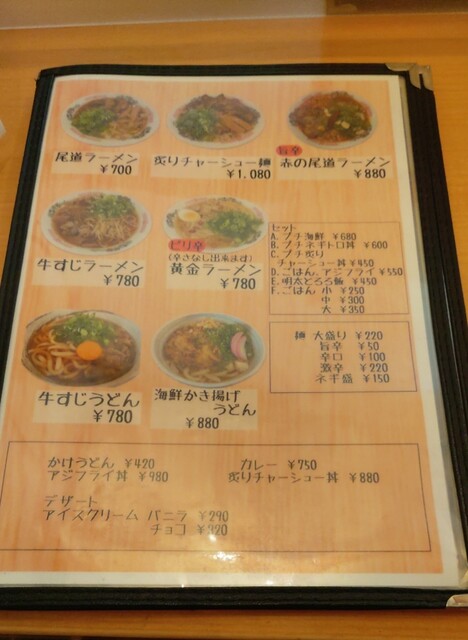 尾道ラーメン
¥700
炙りチャーシュー麺
¥1,080
旨辛
赤の尾道ラーメン
¥880
牛すじラーメン
¥780
ピリ辛
(辛さなし出来ます)
黄金ラーメン
¥780
セット
A.プチ海鮮 ¥680
B.プチネギトロ丼 ¥600
C.プチ炙り
チャーシュー丼 ¥450
D.ごはん、アジフライ ¥550
E.明太とろろ飯 ¥450
F.ごはん 小 ¥250
中 ¥300
大 ¥350
牛すじうどん
¥780
海鮮かき揚げ
うどん
¥880
麺 大盛り ¥220
旨辛 ¥50
辛口 ¥100
激辛 ¥220
ネギ盛 ¥150
かけうどん ¥420
アジフライ丼 ¥980
カレー ¥750
炙りチャーシュー丼 ¥880
デザート
アイスクリーム バニラ ¥290
チョコ ¥320